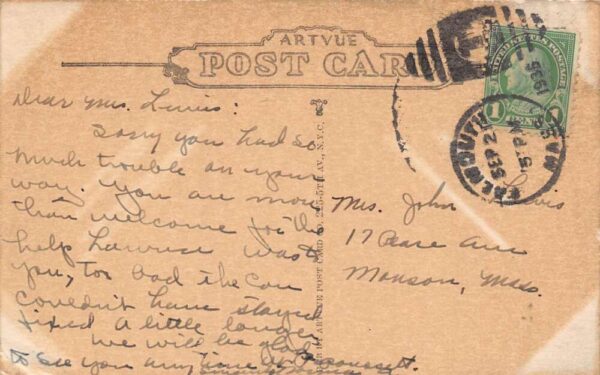 ARTVUE
POST CARD
Dear Mrs.
Sorry you had so
much trouble on your
way. You are more
than welcome for the
help was
you, too bad the car
couldn't have stayed
fixed a little longer
We will be glad
to see you any time at
225-5TH AV., N.Y.C.
ARTVUE POST CARD CO.
UNITED STATES POSTAGE
1 CENT 1
FALMOUTH
SEP 2
5 PM
1935
MASS.
Mrs. John
17 Ave
Monson, Mass.